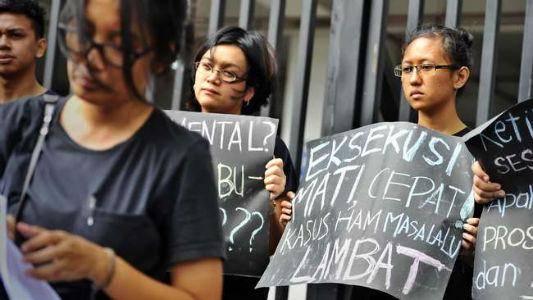 MENTAL?
BU-
??
EKSEKUSI
MATI, CEPAT
KASUS HAM MASALALU
LAMBAT
Keti
SES
Apak
PROS
dan